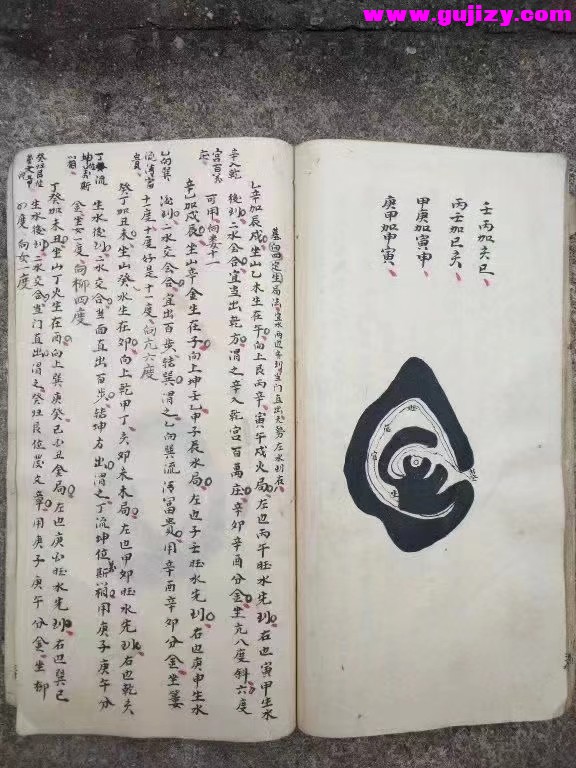 www.gujizy.com
壬丙加亥巳
丙壬加巳亥
甲庚加寅申
庚甲加申寅
旺
官
官
生
墓
乙辛加辰戌坐山乙木生在午向上艮丙辛寅午戌火局左边丙午旺水先到右边寅甲生水
後到二水交合宜当出乾方谓之辛入乾宫百萬庄辛卯辛酉分金坐亢八度斜六度
可用向娄十一
辛入乾
宫百萬
庄
辛乙加戌辰坐山辛金生在子向上坤壬乙申子辰水局左边子壬旺水先到右边庚申生水
後到二水交合宜出百步转巽谓之乙向巽流清富贵用辛酉辛卯分金坐娄
十度十度好是十一度向亢六度
乙向巽
流清富
贵
癸丁加丑未坐山癸水生在卯向上乾甲丁亥卯未木局左边甲卯旺水先到右边乾亥
生水後到二水交合当面直出百步转坤方出谓之丁流坤位斯箱用庚子庚午分
金坐女一度向柳四度
丁流
坤位萬斯
箱
丁癸加未丑坐山丁火生在酉向上巽庚癸巳酉丑金局左边庚酉旺水先到右边巽巳
生水後到二水交合当门直出谓之癸归艮位發文章用庚子庚午分金坐柳
四度向女一度
癸归艮位